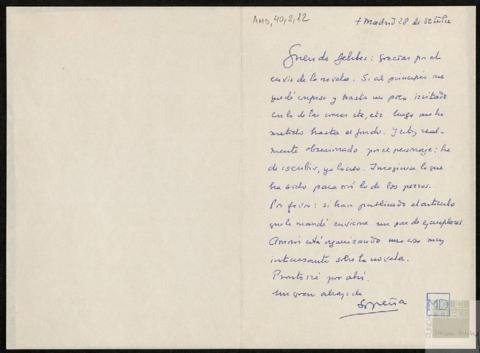 AMD, 40, 2, 12
+ Madrid 28 de octubre
Querido Delibes: Gracias por el
envío de la novela. Si al principio me
quedé un poco irritado
con lo de las comas etc, etc luego me he
metido hasta el fondo. Y estoy real-
mente obsesionado por el personaje: he
de escribir, ya lo creo. Imagínese lo que
ha sido para mí lo de los perros.
Por favor: si han publicado el artículo
que le mandé envíeme un par de ejemplares.
está organizando una cosa muy
interesante sobre la novela.
Pronto iré por ahí.
Un gran abrazo de
Sopeña
MD